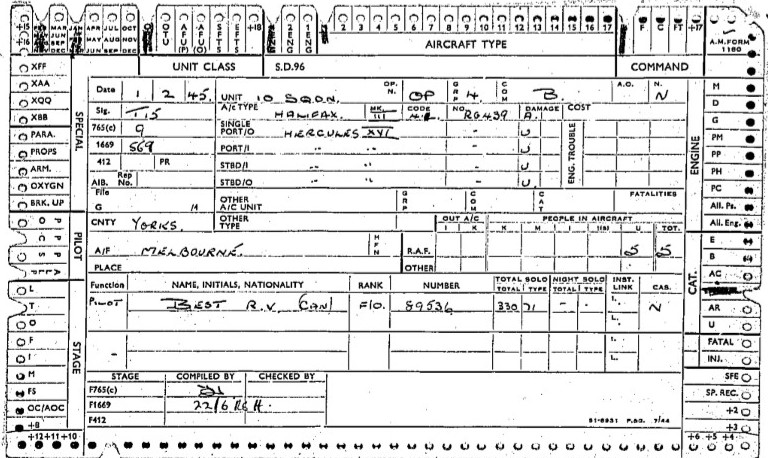 +15 FEB MAR JAN APR JUL OCT OTU AFU (P) AFU (O) SFTS EFTS +18 2ENG 1ENG 2 3 4 5 6 7 8 9 10 11 12 13 14 15 16 17 F C FT +17
+16 MAY JUN AUG SEP MAY AUG NOV
NOV DEC JUN SEP DEC AIRCRAFT TYPE A.M. FORM 1180
UNIT CLASS S.D.96 COMMAND
XFF
XAA
XQQ
XBB
PARA.
PROPS
ARM.
OXYGN
BRK. UP
SPECIAL
Date 1 2 45. UNIT 10 SQDN. OP. N. OP GRP 4. COM B. A.O. N. N
Sig. T15 A/C TYPE HALIFAX. MK. III CODE NO. RG439 DAMAGE A. COST
765(c) 9 SINGLE PORT/O HERCULES XVI U
1669 569 PORT/I " " U
412 PR STBD/I " " U
AIB. Rep No. STBD/O " " U
ENG. TROUBLE
File G M OTHER A/C UNIT GRP COM CAT FATALITIES
CNTY YORKS. OTHER TYPE OUT A/C PEOPLE IN AIRCRAFT
I K K M I I(S) U TOT.
A/F MELBOURNE. HFN R.A.F. 5 5
PLACE OTHER
Function NAME, INITIALS, NATIONALITY RANK NUMBER TOTAL SOLO NIGHT SOLO INST. LINK CAS.
TOTAL TYPE TOTAL TYPE
PILOT BEST R.V (CAN) F/O. 89536 330 71 - - I. L. N
I.
L.
STAGE COMPILED BY CHECKED BY
F765(c)
F1669 22/6 RGH.
F412
51-8931 P.BG. 7/44
PILOT
STAGE
L
T
O
F
I
M
FS
OC/AOC
+8
+12 +11 +10
ENGINE
M
D
G
PM
PP
PH
PC
All. Ps.
All. Eng.
CAT.
E
B
AC
AR
U
FATAL
INJ.
SFE
SP. REC.
+2
+3
+6 +5 +4